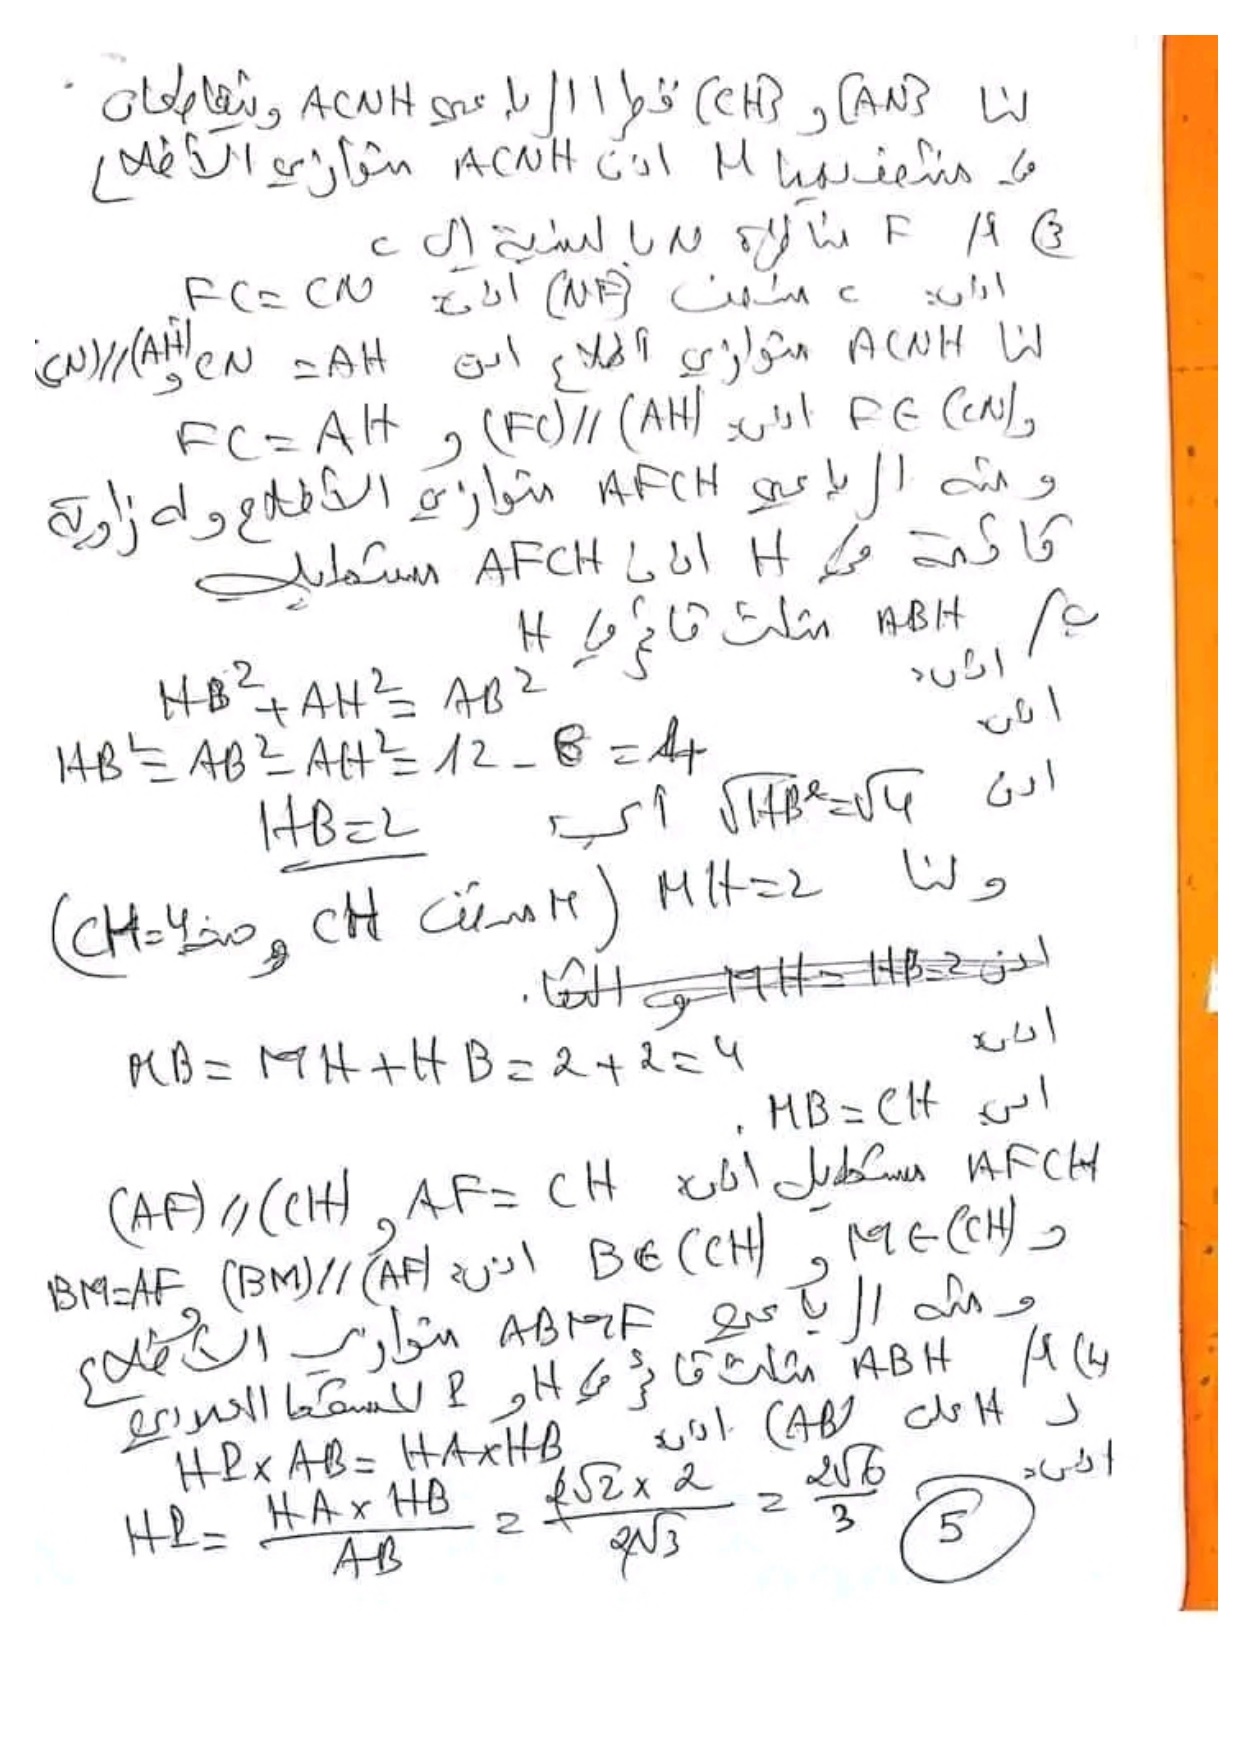 لنا [AN] و [CH] قطرا الرباعي ACNH ويتقاطعان
في منتصفهما M اذن ACNH متوازي الأضلاع
3) أ/ F مماثلة N بالنسبة إلى C
اذن C منتصف [NF] اذن FC = CN
لنا ACNH متوازي أضلاع اذن CN = AH و (AH)//(CN)
و F∈(CN) اذن (FC)//(AH) و FC = AH
ومنه الرباعي AFCH متوازي الأضلاع وله زاوية
قائمة في H اذن AFCH مستطيل
ب/ ABH مثلث قائم في H
اذن HB²+AH² = AB²
اذن HB² = AB²-AH² = 12-8 = 4
اذن √HB² = √4 أي HB=2
ولنا MH=2 (M منتصف CH و CH=4)
اذن MH = HB=2 و
اذن MB = MH+HB = 2+2=4
اذن MB = CH .
AFCH مستطيل اذن AF = CH و (AF)//(CH)
و M∈(CH) و B∈(CH) اذن (BM)//(AF) و BM=AF
ومنه الرباعي ABMF متوازي الأضلاع
4) أ/ ABH مثلث قائم في H و P المسقط العمودي
لـ H على (AB) اذن HP×AB = HA×HB
اذن HP = HA×HB / AB = 2√2×2 / 2√3 = 2√6 / 3
5